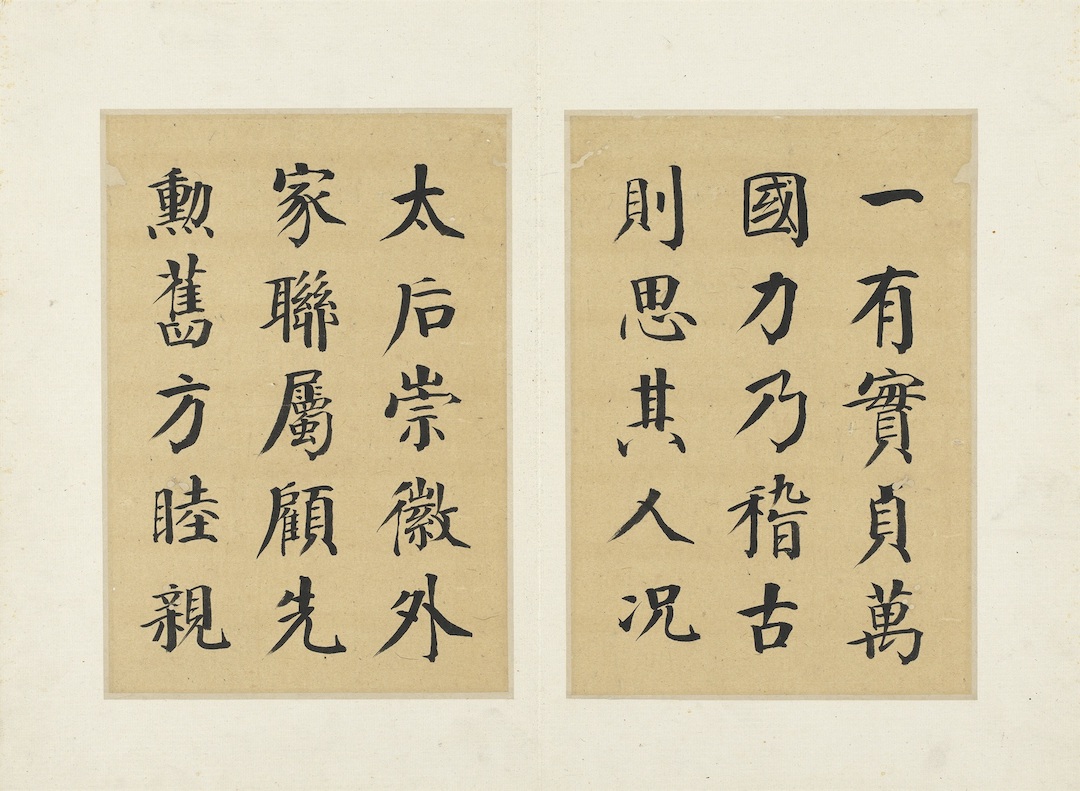 一有實貞萬
國力乃稽古
則思其人况
太后崇徽外
家聯屬顧先
勳舊方睦親